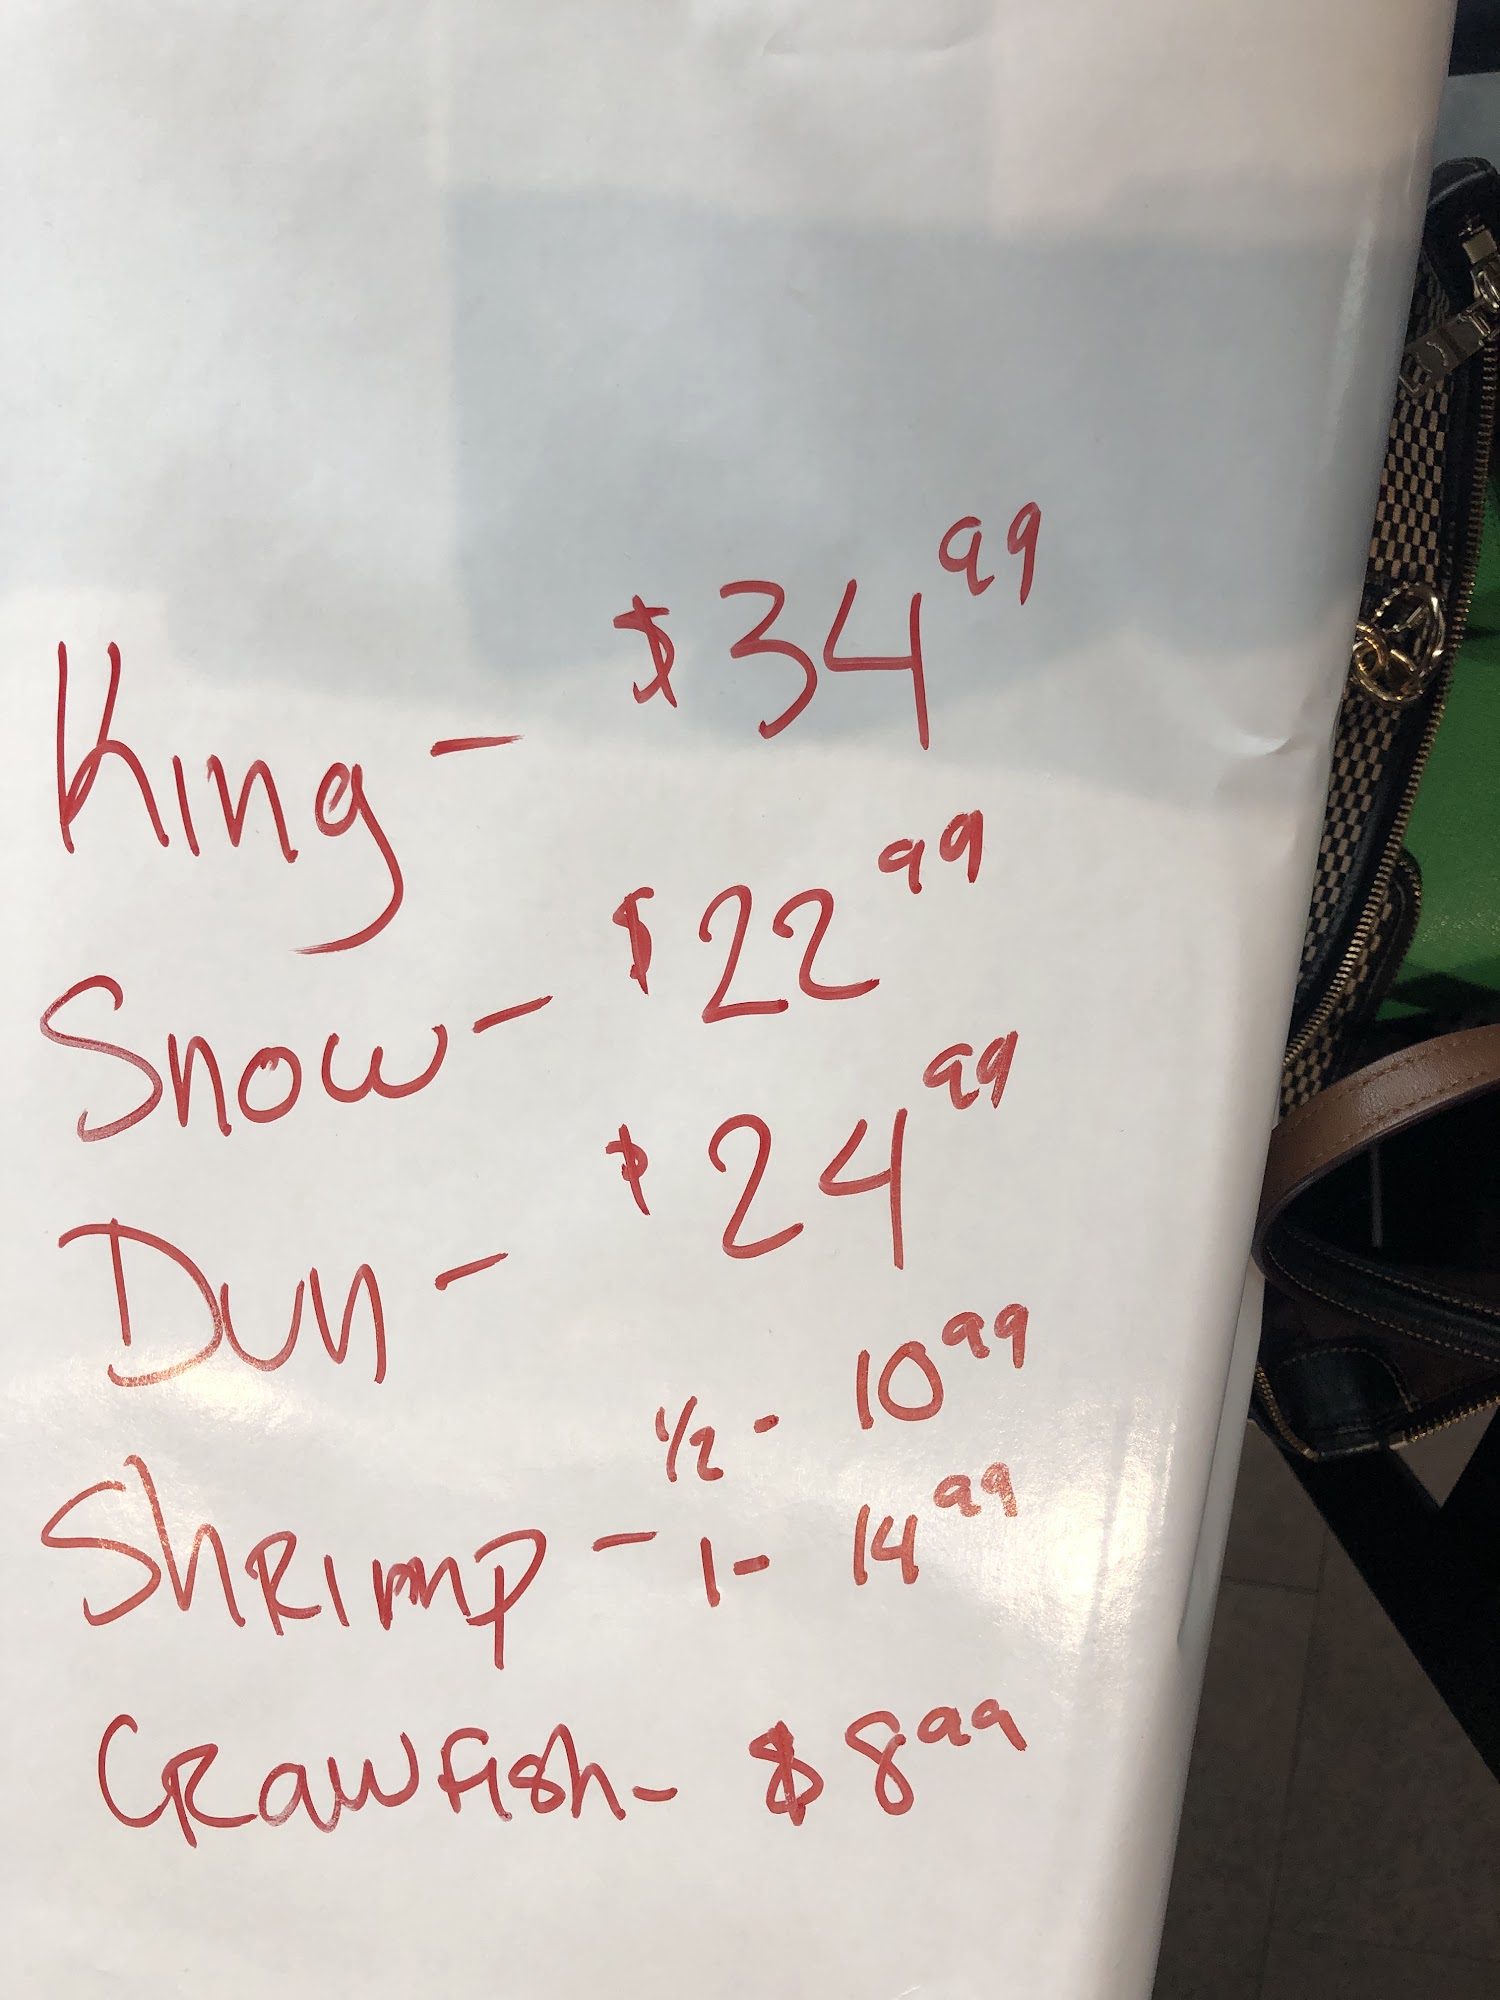 King - $34.99
Snow - $22.99
Dun - $24.99
1/2 - 10.99
Shrimp - 1 - 14.99
Crawfish - $8.99